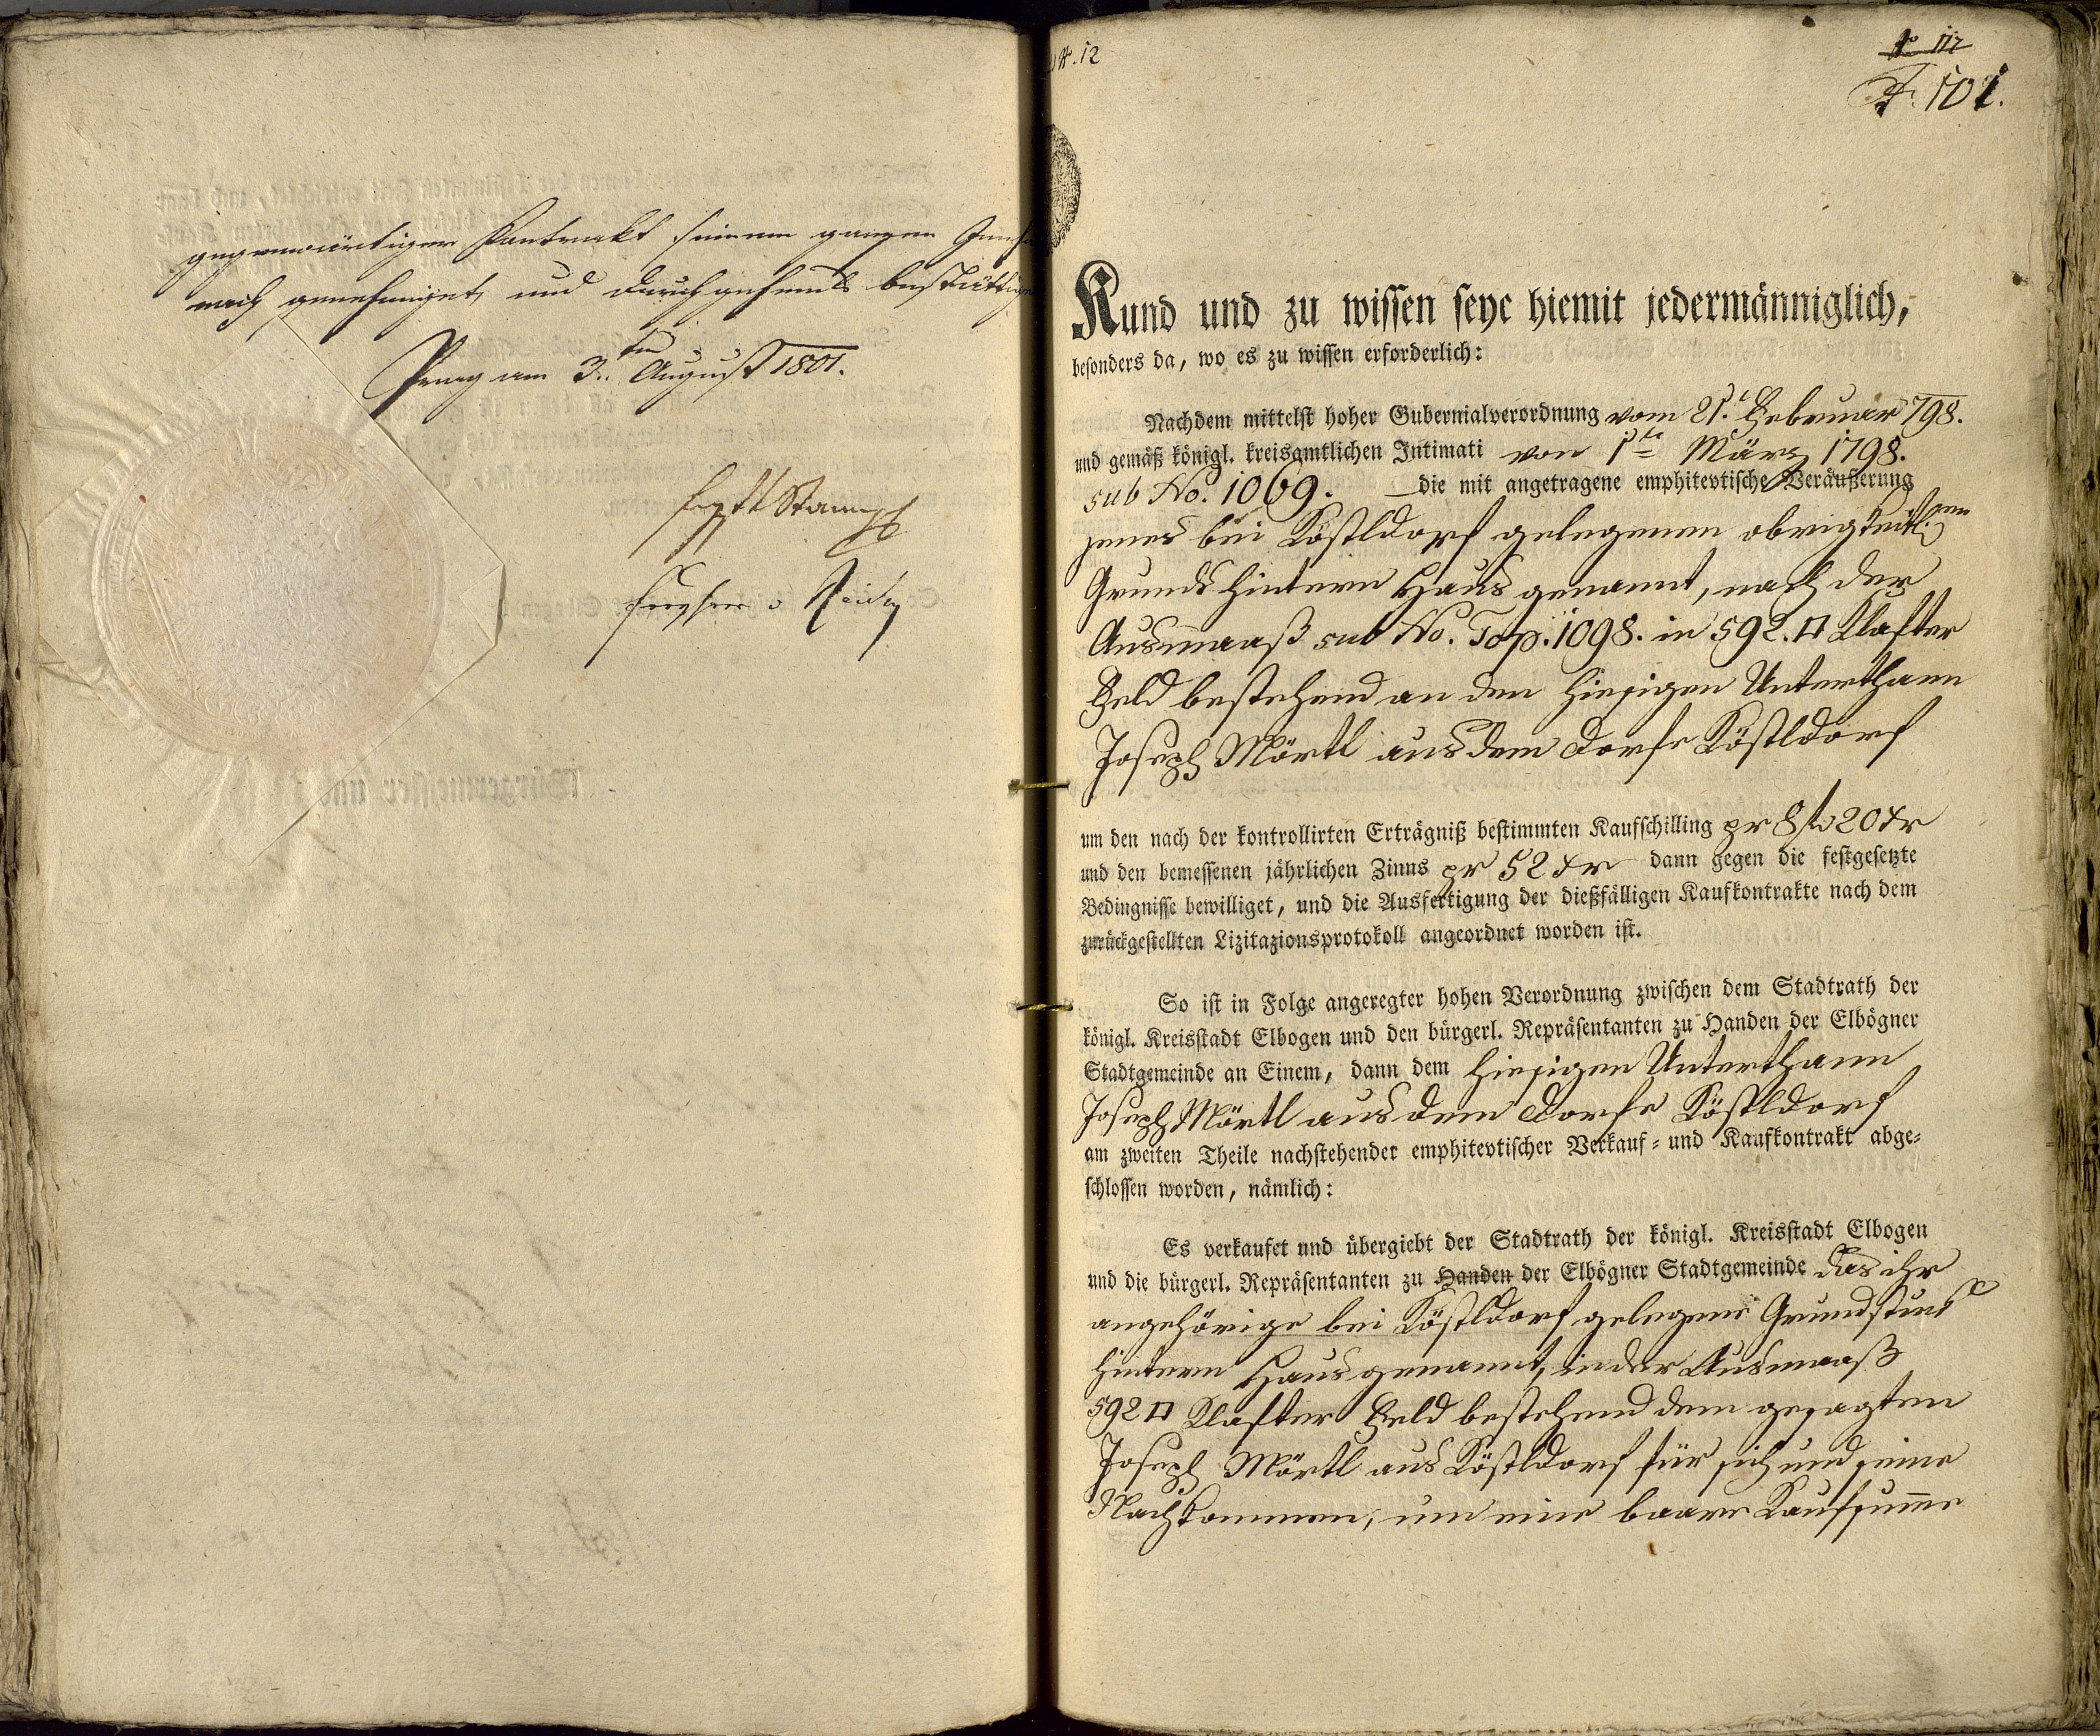 gegenwärtiger Kontrakt seinem ganzen
nach genehmiget, und durchgehends bestättiget
Prag am 3.ten August 1801.
№. 12
F. 101.
Kund und zu wissen seye hiemit jedermänniglich,
besonders da, wo es zu wissen erforderlich:
Nachdem mittelst hoher Gubernialverordnung vom 21. Februar 798.
und gemäß königl. kreisamtlichen Intimati von 1te März 1798.
sub No. 1069. die mit angetragene emphitevtische Veräußerung
jenes bei Köstldorf gelegenen obrigkeitl.en
Grunds hintern Haus genannt, nach der
Ausmaaß sub No. Top. 1098. in 592. □ Klafter
Feld bestehend an den hiesigen Unterthann
Joseph Mörtl aus dem Dorfe Köstldorf
um den nach der kontrollirten Erträgniß bestimmten Kaufschilling pr 8 f 20 xr
und den bemessenen jährlichen Zinns pr 52 xr dann gegen die festgesetzte
Bedingnisse bewilliget, und die Ausfertigung der dießfälligen Kaufkontrakte nach dem
zurückgestellten Lizitazionsprotokoll angeordnet worden ist.
So ist in Folge angeregter hohen Verordnung zwischen dem Stadtrath der
königl. Kreisstadt Elbogen und den bürgerl. Repräsentanten zu Handen der Elbögner
Stadtgemeinde an Einem, dann dem hiesigen Unterthann
Joseph Mörtl aus dem Dorfe Köstldorf
am zweiten Theile nachstehender emphitevtischer Verkauf- und Kaufkontrakt abge-
schlossen worden, nämlich:
Es verkaufet und übergiebt der Stadtrath der königl. Kreisstadt Elbogen
und die bürgerl. Repräsentanten zu Handen der Elbögner Stadtgemeinde das ihr
angehörige bei Köstldorf gelegene Grundstück
hintern Haus genannt, in der Ausmaaß
592 □ Klafter Feld bestehend dem gesagten
Joseph Mörtl aus Köstldorf für sich und seine
Nachkommen, um eine baare Kaufsume